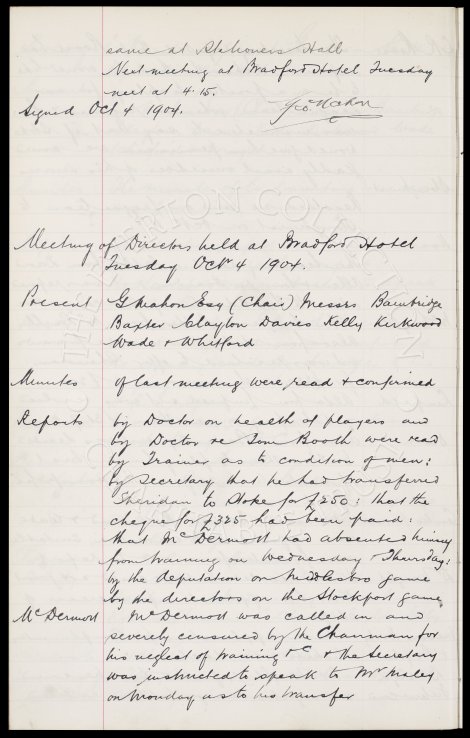 same at Stationers Hall
Next meeting at Bradford Hotel Tuesday
next at 4.15.
Signed Oct 4 1904. Geo Mahon
Meeting of Directors held at Bradford Hotel
Tuesday Oct 4 1904.
Present G Mahon Esq (Chair) Messrs Bainbridge
Baxter Clayton Davies Kelly Kirkwood
Wade & Whitford
Minutes of last meeting were read & confirmed
Reports by Doctor on health of players and
by Doctor re Tom Booth were read
by Trainer as to condition of men:
by Secretary that he had transferred
Sheridan to Stoke for £250: that the
cheque for £325 had been paid:
that McDermott had absented himself
from training on Wednesday & Thursday:
by the deputation on Middlesboro game
by the directors on the Stockport game
McDermott McDermott was called in and
severely censured by the Chairman for
his neglect of training &c & the Secretary
was instructed to speak to Mr Maley
on Monday as to his transfer